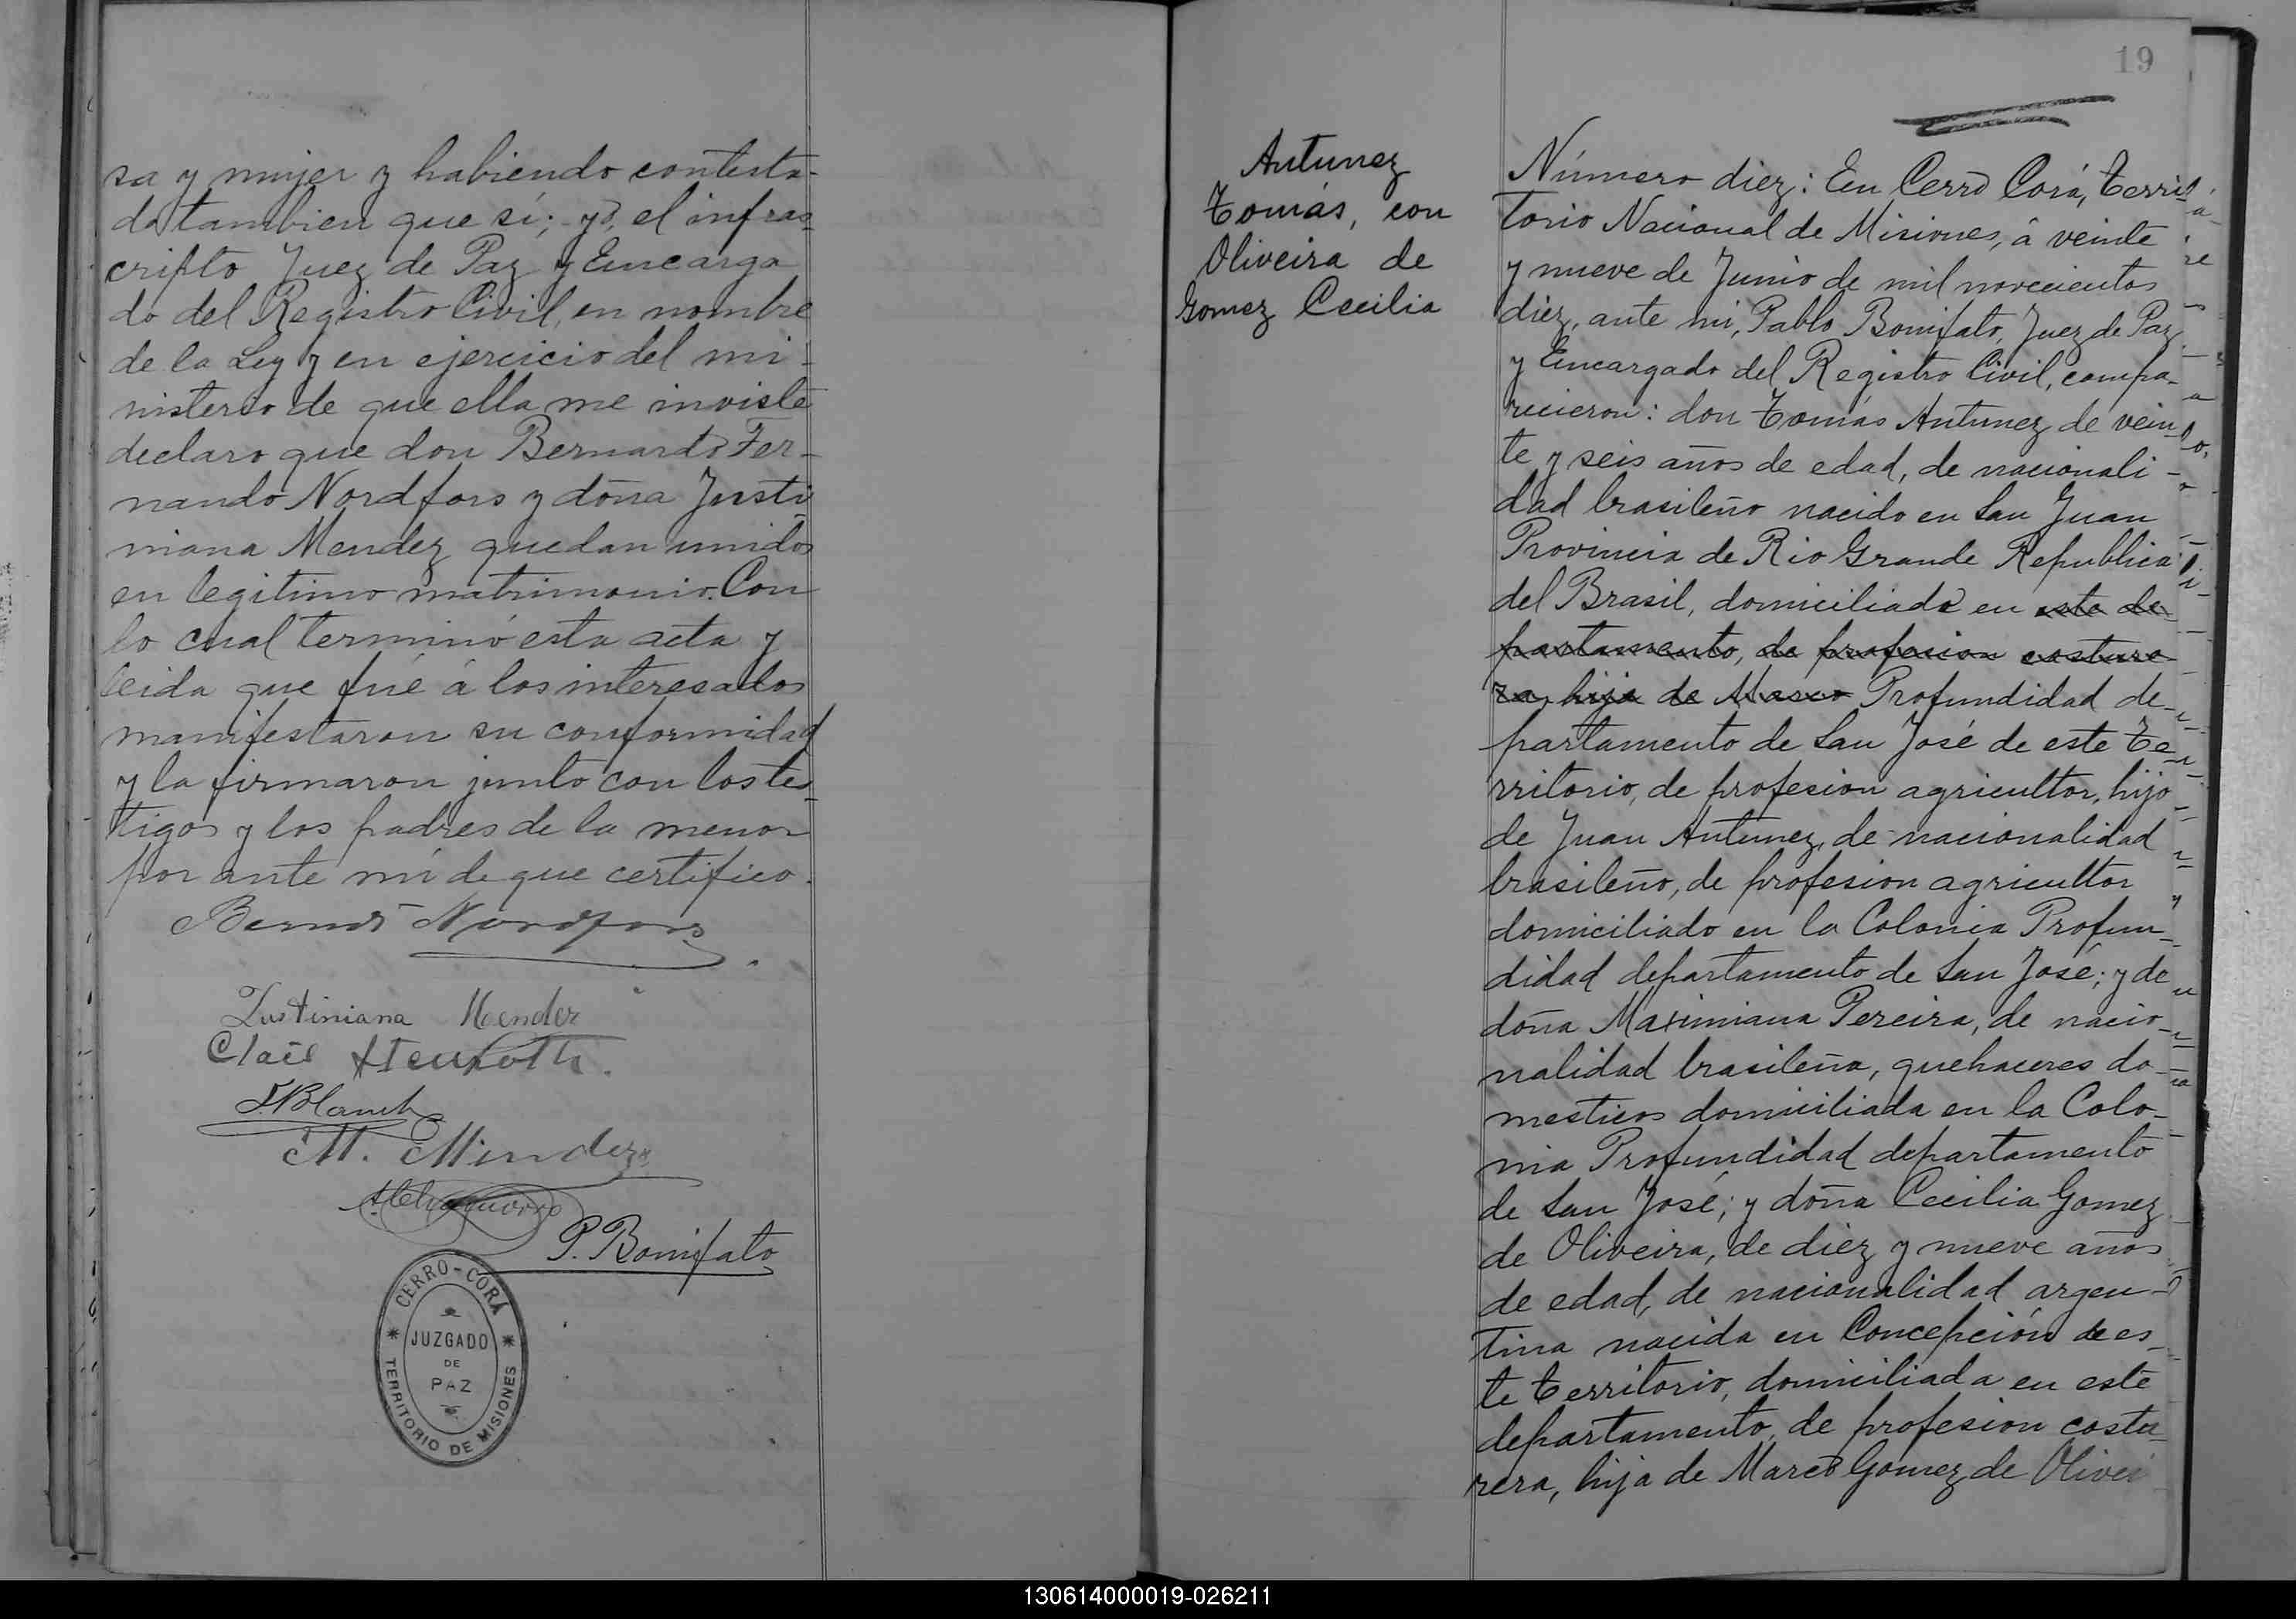 sa y mujer y habiendo contesta-
do tambien que sí; yó, el infras-
cripto Juez de Paz y Encarga
do del Registro Civil, en nombre
de la Ley y en ejercicio del mi-
nisterio de que ella me inviste
declaro que don Bernardo Fer-
nando Nordfors y doña Justi
niana Mendez quedan unidos
en legitimo matrimonio. Con
lo cual terminó esta acta y
leida que fué á los interesados
manifestaron su conformidad
y la firmaron junto con los tes-
tigos y los padres de la menor
por ante mí de que certifico.
Nordfors
Justiniana Mendez
M. Mendez
P. Bonifato
CERRO-CORÁ
JUZGADO
DE
PAZ
TERRITORIO DE MISIONES
19
Antunez
Tomás, con
Oliveira de
Gomez Cecilia
Número diez: En Cerro Corá, Terri-
torio Nacional de Misiones, á veinte
y nueve de Junio de mil novecientos
diez, ante mi, Pablo Bonifato, Juez de Paz
y Encargado del Registro Civil, compa-
recieron: don Tomás Antunez de vein-
te y seis años de edad, de nacionali-
dad brasileño nacido en San Juan
Provincia de Rio Grande Republica
del Brasil, domiciliado en este de-
partamento, de profesion costure-
ra, hija de Marco Profundidad de-
partamento de San José de este Te-
rritorio, de profesion agricultor, hijo
de Juan Antunez, de nacionalidad
brasileño, de profesion agricultor
domiciliado en la Colonia Profun-
didad departamento de San José; y de
doña Maximiana Pereira, de nacio-
nalidad brasileña, quehaceres do-
mesticos domiciliada en la Colo-
nia Profundidad departamento
de San José; y doña Cecilia Gomez
de Oliveira, de diez y nueve años
de edad, de nacionalidad argen-
tina nacida en Concepción de es-
te territorio, domiciliada en este
departamento, de profesion costu-
rera, hija de Marco Gomez de Olivei
130614000019-026211